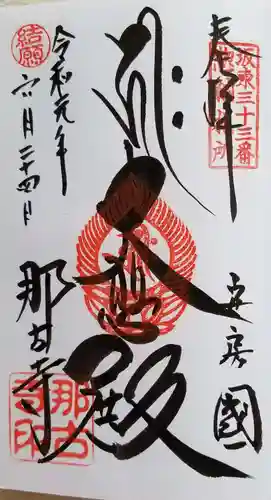 奉拝
坂東三十三番
安房國
大悲殿
結願
令和元年
六月二十四日
那古寺
那古
寺印